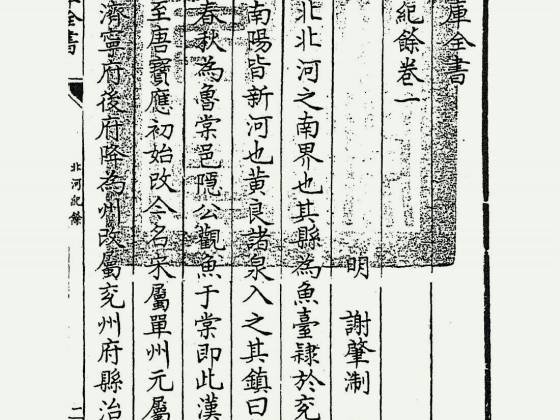 庫全書
紀餘卷一
明 謝肇淛
北北河之南界也其縣為魚臺隸於兖
南陽皆新河也黄良諸泉入之其鎮曰
春秋為魯棠邑隱公觀魚于棠即此漢
至唐寶應初始改今名宋屬單州元屬
濟寧府後府降為州改屬兖州府縣治
庫全書
北河紀餘
二